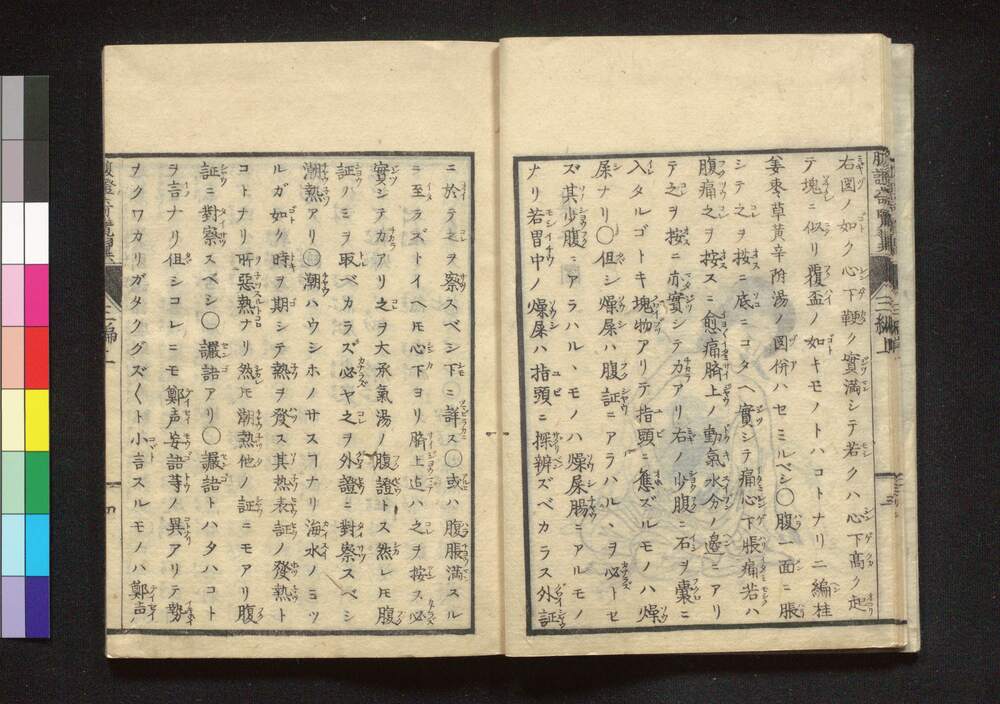 右図ノ如ク心下鞕ク實満シテ若クハ心下髙ク起
テ塊ニ似リ覆盃ノ如キモノトハコトナリ二編桂
姜枣草黄辛附湯ノ図併ハセミルベシ〇腹一面ニ脹
シテ之ヲ按ニ底ニコタヘ實シテ痛心下脹痛若ハ
腹痛之ヲ按スニ愈痛臍上ノ動氣水分ノ邉ニアリ
テ之ヲ按ニ亦實シテカラアリ右ノ少腹ニ石ヲ嚢ニ
入タルゴトキ塊物アリテ指頭ニ應ズルモノハ燥
屎ナリ〇但シ燥屎ハ腹証ニアラハル丶ヲ必トセ
ズ其少腹ニアラハル丶モノハ燥屎腸ニアルモノ
ナリ若胃中ノ燥屎ハ指頭ニ探辨ズベカラス外証
ニ於テ之ヲ察スベシ下ニ詳ス〇或ハ腹脹満スル
ニ至ラズトイヘ𪜈心下ヨリ臍上辺ハ之ヲ按ス必
實シテカアリ之ヲ大承氣湯ノ腹證トス然レ𪜈腹
証ノミヲ取ベカラズ必ヤ之ヲ外證ニ對察スベシ
潮熱アリ〇潮ハウシホノサスヿナリ海水ノミツ
ルガ如ク時ヲ期シテ熱ヲ發ス其熱表証ノ發熱ト
コトナリ所惡熱ナリ然𪜈潮熱他ノ証ニモアリ腹
証ニ對察スベシ〇讝語アリ〇讝語トハタハコト
ヲ言ナリ但シコレニモ鄭声妄語等ノ異アリテ勢
ヲクワカリガタクグズ〱ト小言スルモノハ鄭声ノ
三編上
三